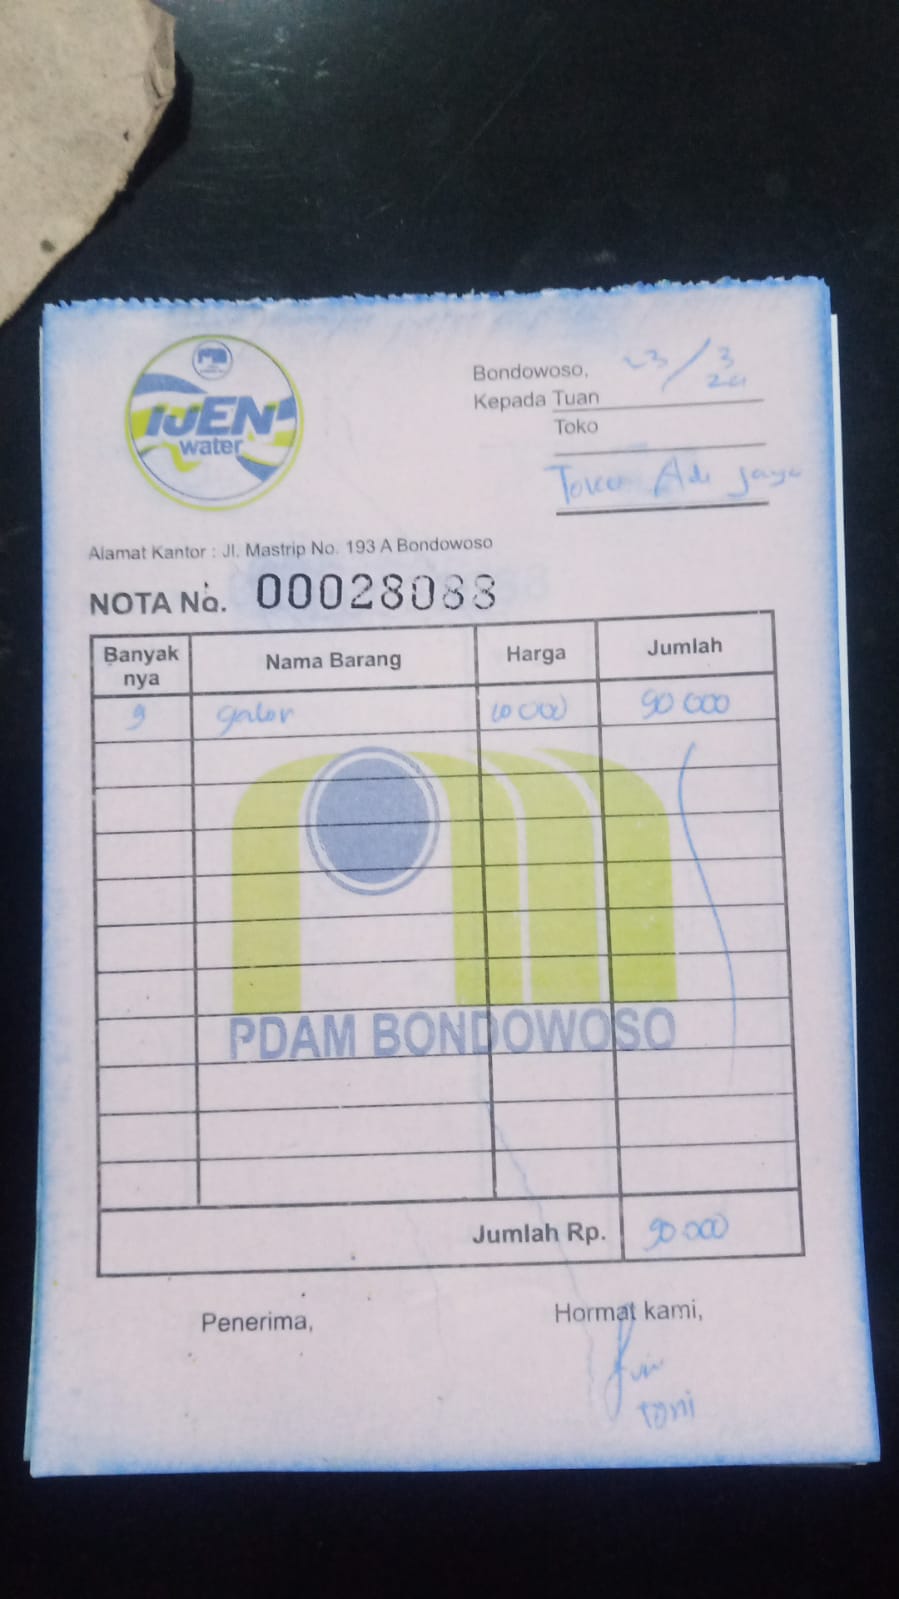 IJEN
water
Bondowoso, 23/3
Kepada Tuan
Toko
Toko Adi Jaya
Alamat Kantor : Jl. Mastrip No. 193 A Bondowoso
NOTA No. 00028088
Banyak nya Nama Barang Harga Jumlah
9 galon 10 000 90 000
PDAM BONDOWOSO
Jumlah Rp. 90.000
Penerima, Hormat kami,
Toni